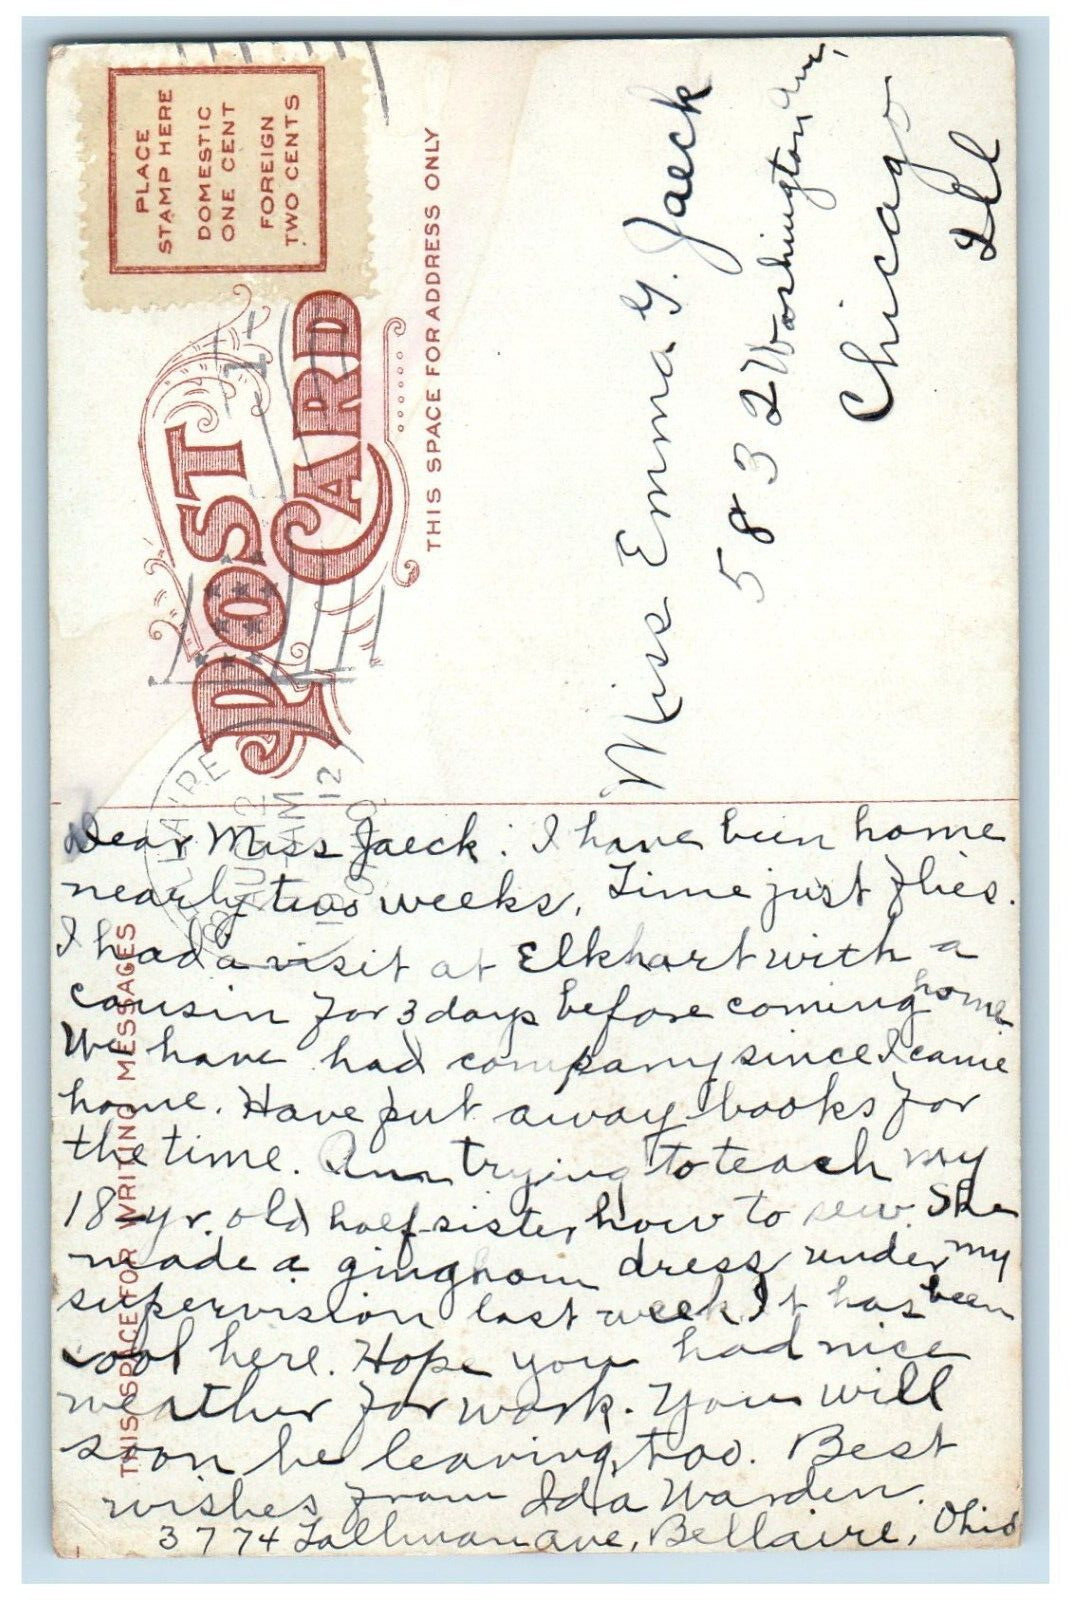 PLACE
STAMP HERE
DOMESTIC
ONE CENT
FOREIGN
TWO CENTS
POST
CARD
THIS SPACE FOR ADDRESS ONLY
Miss Emma G. Jaeck
5832 Washington Ave,
Chicago
Ill
12
AM
THIS SPACE FOR WRITING MESSAGES
Dear Miss Jaeck: I have been home
nearly two weeks. Time just flies.
I had a visit at Elkhart with a
cousin for 3 days before coming home
We have had company since I came
home. Have put away books for
the time. Am trying to teach my
18-yr. old half-sister how to sew. She
made a gingham dress under my
supervision last week. It has been
cool here. Hope you had nice
weather for work. You will
soon be leaving, too. Best
wishes from Ida Warden.
3774 Tallman Ave, Bellaire, Ohio